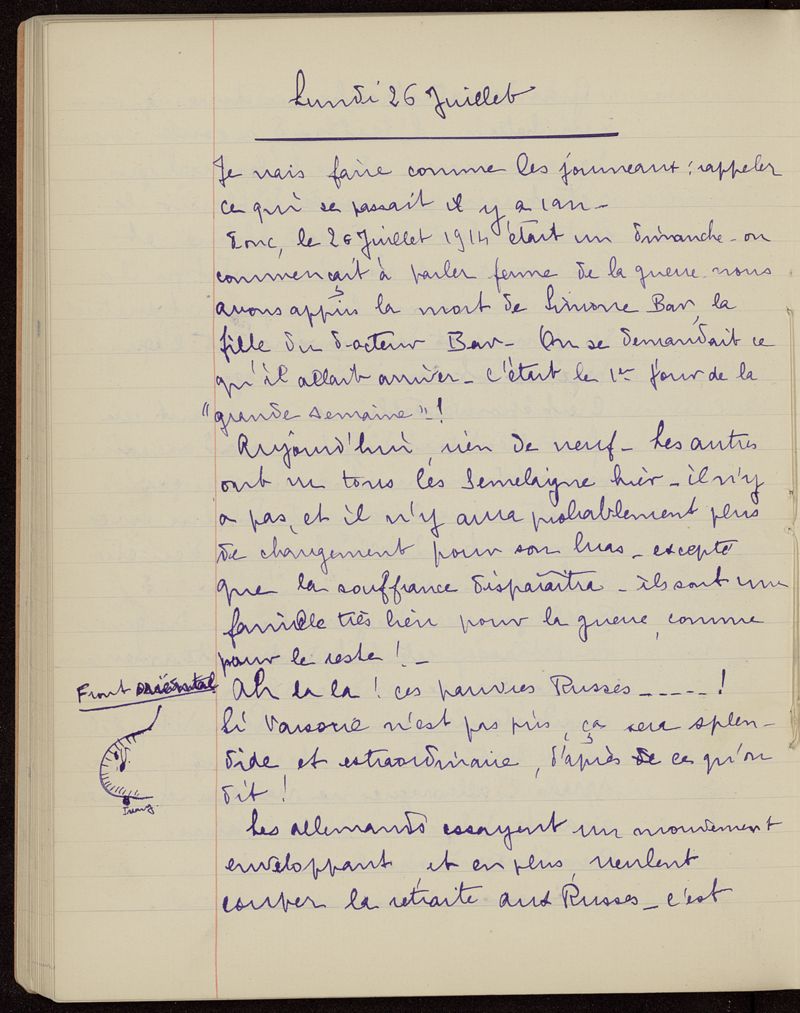 Lundi 26 Juillet
Je vais faire comme les journeaux : rappeler
ce qui se passait il y a 1 an -
Donc, le 26 Juillet 1914 était un dimanche - on
commençait à parler ferme de la guerre - nous
avons appris la mort de Simone Bar, la
fille du docteur Bar - On se demandait ce
qu'il allait arriver - C'était le 1er Jour de la
"grande semaine" !
Aujourd'hui, rien de neuf - Les autres
ont vu tous les Semelaigne hier - il n'y
a pas, et il n'y aura probablement plus
de changement pour son bras - excepté
que la souffrance disparaîtra - ils sont une
famille très bien pour la guerre, comme
pour le reste ! -
Front oriental
Ah la la ! ces pauvres Russes ----- !
Si Varsovie n'est pas pris, ça sera splen-
dide et extraordinaire, d'après de ce qu'on
dit !
Les allemands essayent un mouvement
enveloppant, et en plus, veulent
couper la retraite aux Russes - c'est